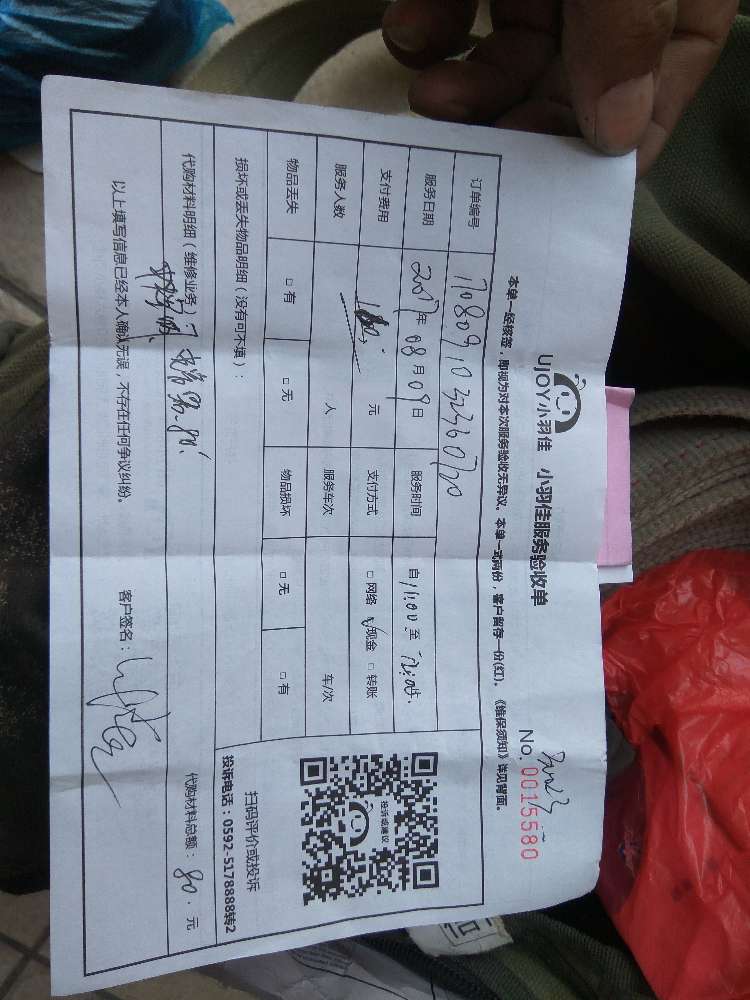 UJOY小羽佳 小羽佳服务验收单
No. 0015580
本单一经核签，即视为对本次服务验收无异议。本单一式两份，客户留存一份(红)。《维保须知》详见背面。
订单编号
服务日期 2017年08月09日 服务时间 自11:00至
支付费用 元 支付方式 □网络 √现金 □转账
服务人数 人 服务车次 车/次
物品丢失 □有 □无 物品损坏 □无 □有
损坏或丢失物品明细（没有可不填）：
投诉或建议
扫码评价或投诉
投诉电话：0592-5178888转2
代购材料明细（维修业务）：
代购材料总额：80.元
以上填写信息已经本人确认无误，不存在任何争议纠纷。
客户签名：